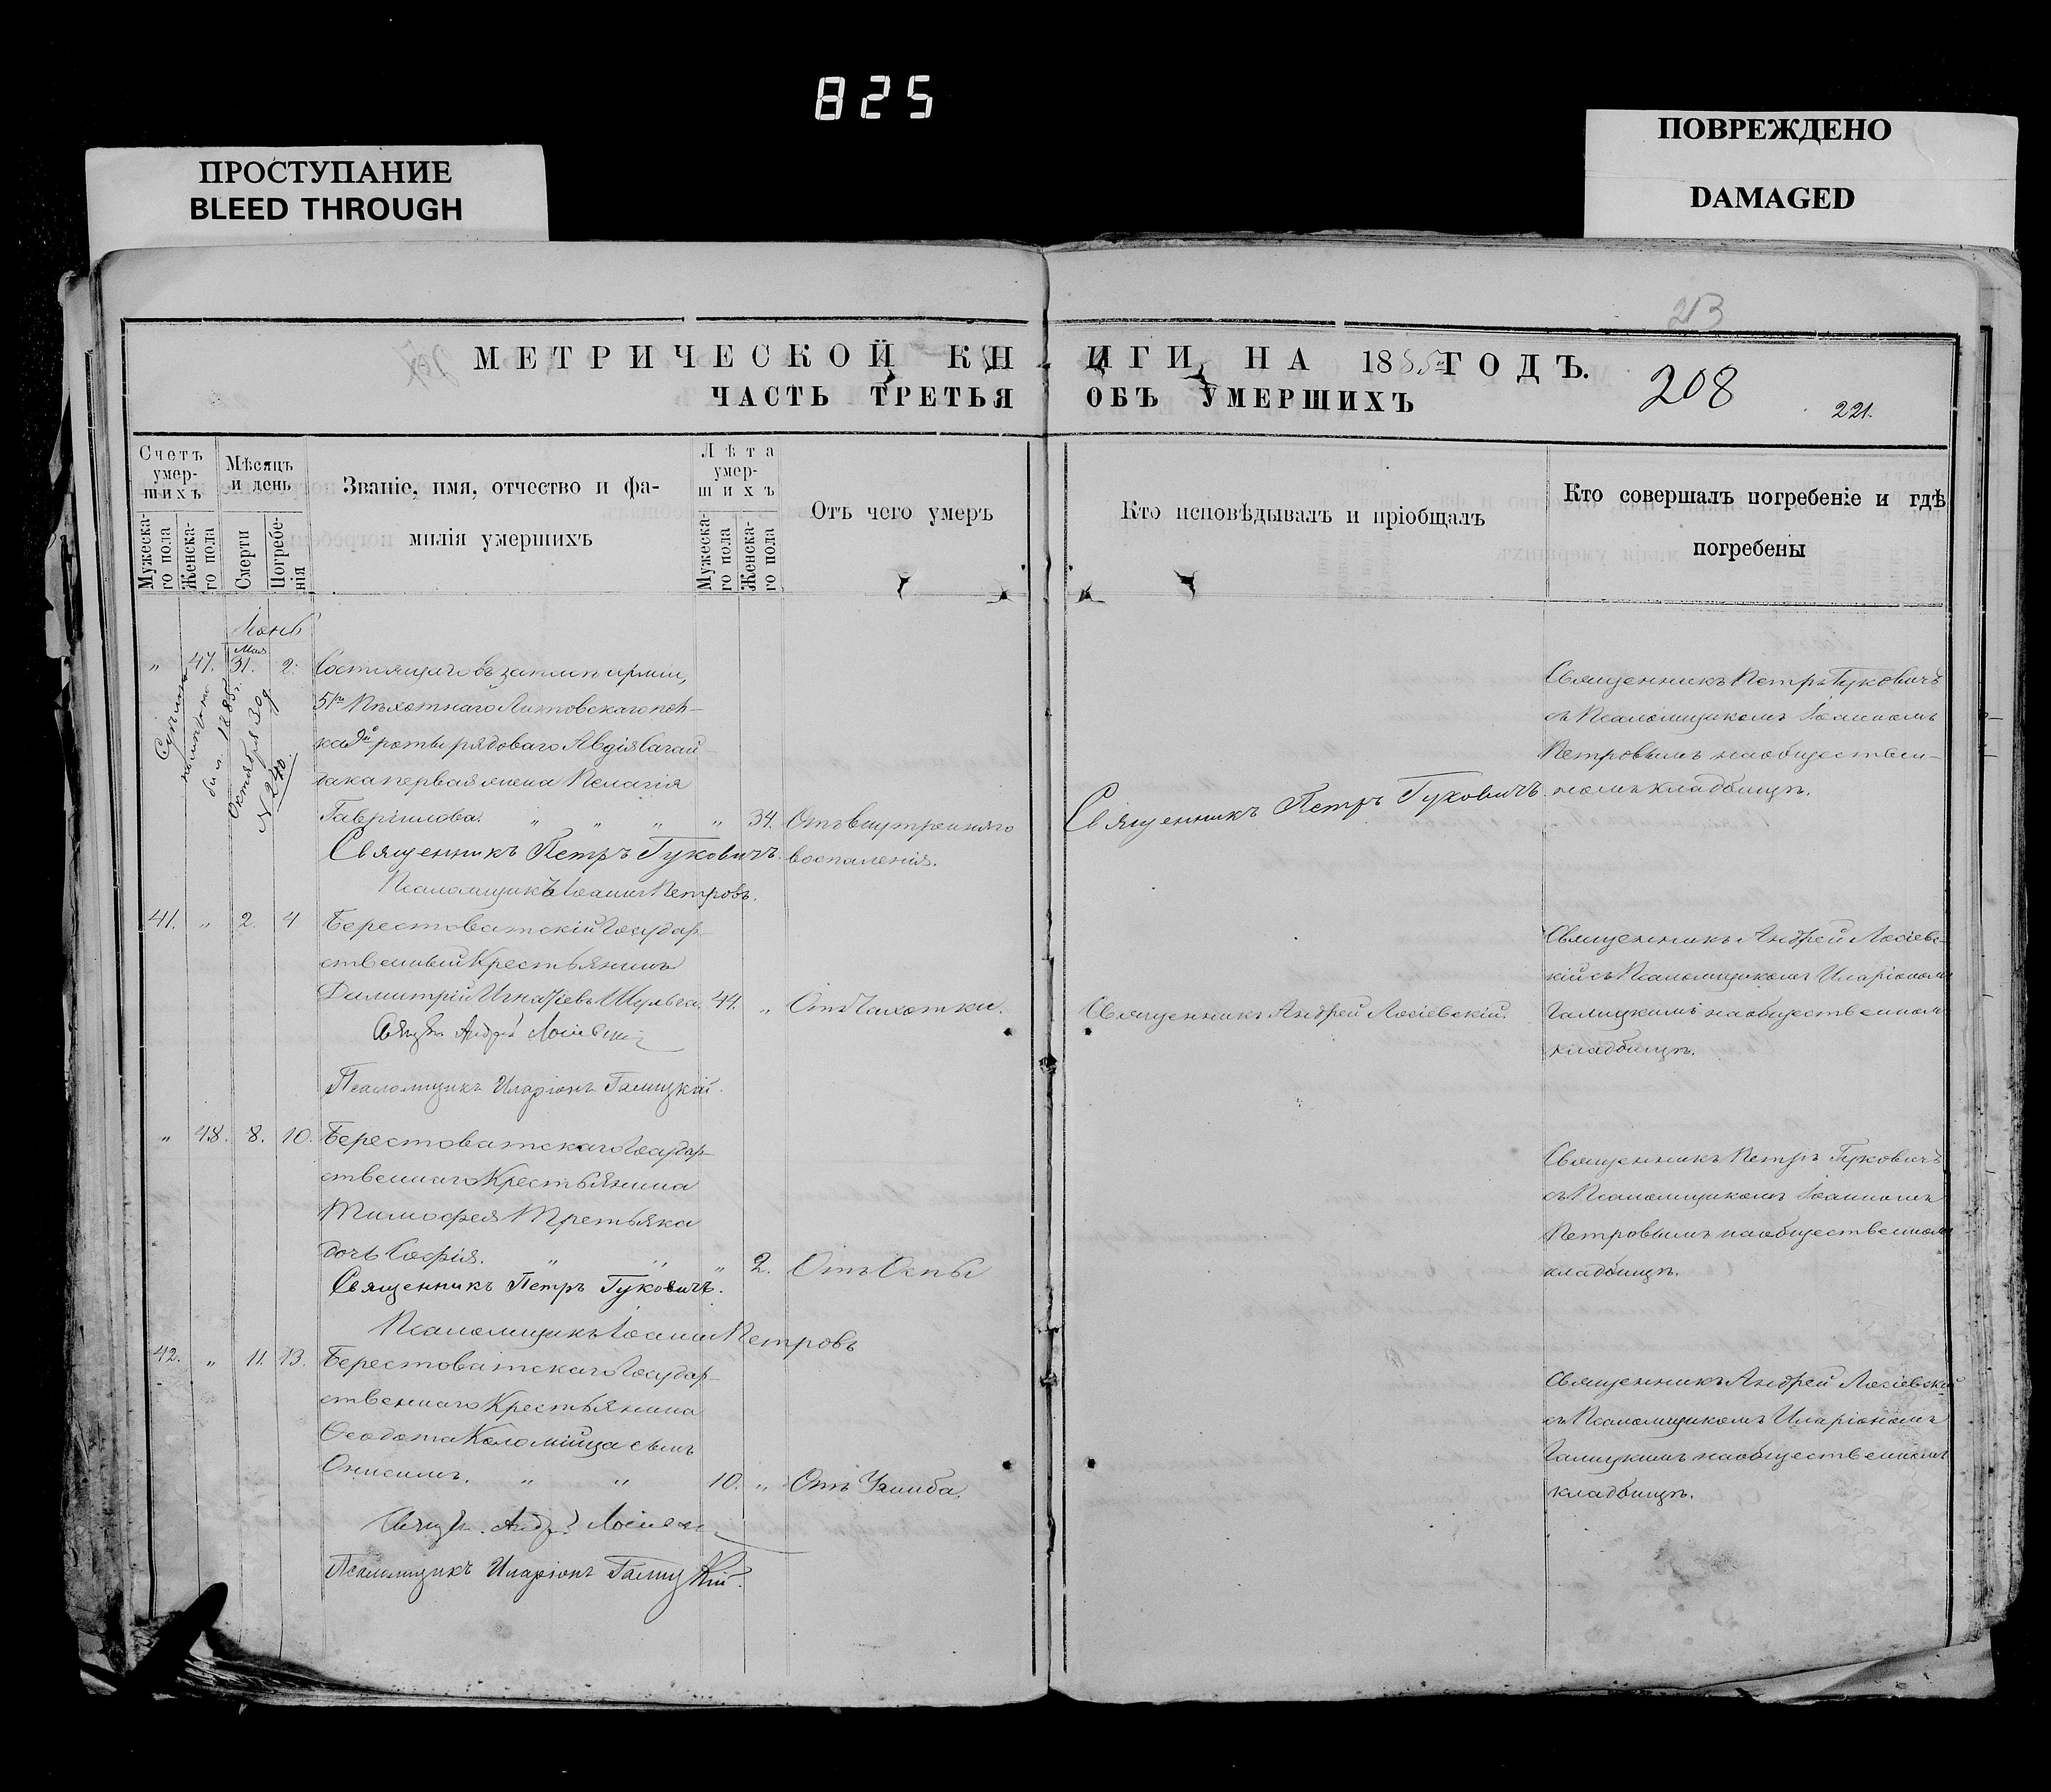 825
ПРОСТУПАНИЕ
BLEED THROUGH
ПОВРЕЖДЕНО
DAMAGED
213
МЕТРИЧЕСКОЙ КНИГИ НА 1885 ГОДЪ.
ЧАСТЬ ТРЕТЬЯ ОБЪ УМЕРШИХЪ
208
221.
Счетъ умер-шихъ
Мужеска-го пола
Женска-го пола
Мѣсяцъ и день
Смерти
Погребе-нія
Званіе, имя, отчество и фа-
милія умершихъ
Лѣта умер-шихъ
Мужеска-го пола
Женска-го пола
Отъ чего умеръ
Кто исповѣдывалъ и пріобщалъ
Кто совершалъ погребеніе и гдѣ
погребены
Іюнь
Мая
„ 47. 31. 2. Состоящаго въ запасѣ арміи,
51го Пѣхотнаго Литовскаго пол-
ка 9й роты рядоваго Авдія Сагай-
дака первая жена Пелагія
Гавріилова. „ „ „ „ 34. Отъ внутренняго
воспаленія.
Священникъ Петръ Гуковичъ.
Псаломщикъ Іоаннъ Петровъ.
1885 г.
Октября 30 д
N 240.
Священникъ Петръ Гуковичъ.
Священникъ Петръ Гуковичъ
съ Псаломщикомъ Іоанномъ
Петровымъ на обществен-
номъ кладбищѣ.
41. „ 2. 4 Берестоватскій Государ-
ственный Крестьянинъ
Димитрій Игнатіевъ Шульга. 44. „ Отъ Чахотки.
Священ. Андрей Лосіевскій
Псаломщикъ Иларіонъ Галицкій.
Священникъ Андрей Лосіевскій.
Священникъ Андрей Лосіевс-
кій съ Псаломщикомъ Иларіономъ
Галицкимъ на общественномъ
кладбищѣ.
„ 48. 8. 10. Берестоватскаго Государ-
ственнаго Крестьянина
Тимофея Третьяка
дочь Софія. „ „ „ 2. Отъ Оспы
Священникъ Петръ Гуковичъ.
Псаломщикъ Іоаннъ Петровъ
Священникъ Петръ Гуковичъ
съ Псаломщикомъ Іоанномъ
Петровымъ на общественномъ
кладбищѣ.
42. „ 11. 13. Берестоватскаго Государ-
ственнаго Крестьянина
Ѳеодота Коломійца сынъ
Онисимъ. „ „ 10. „ Отъ Ушиба.
Священ. Андрей Лосіевскій
Псаломщикъ Иларіонъ Галицкій.
Священникъ Андрей Лосіевскій
съ Псаломщикомъ Иларіономъ
Галицкимъ на общественномъ
кладбищѣ.